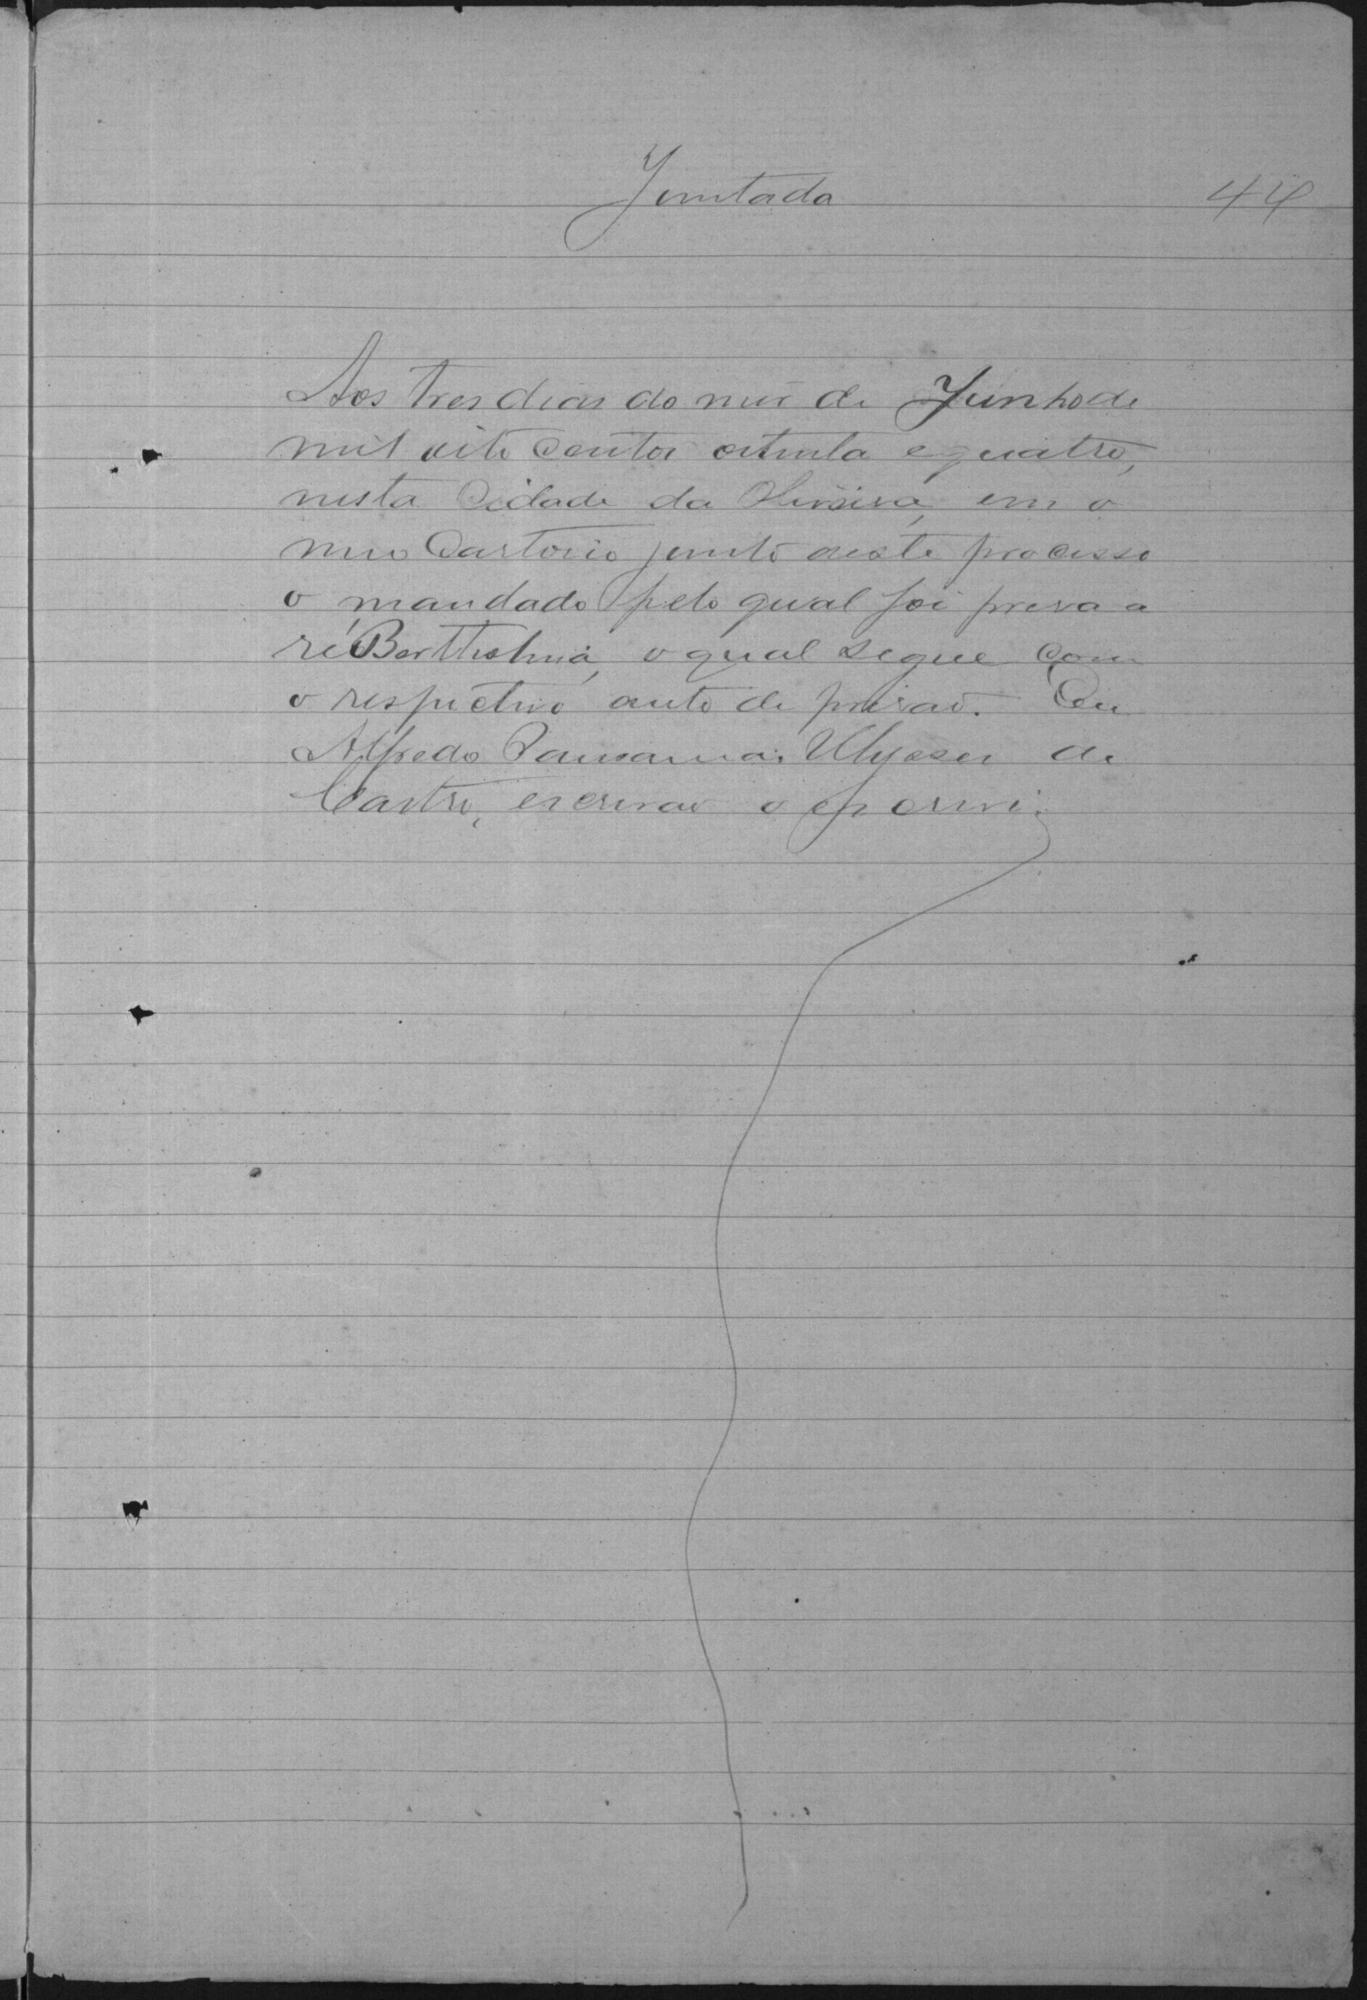 Juntada
44
Aos tres dias do mez de Junho de
mil oito centos oitenta e quatro,
nesta Cidade da Oliveira, em o
meo Cartorio junto a este processo
o mandado pelo qual foi presa a
ré Bertholina, o qual segue com
o respectivo auto de prisão. Eu
Alfredo Pausanias Ulysses de
Castro, escrivao o escrevi.